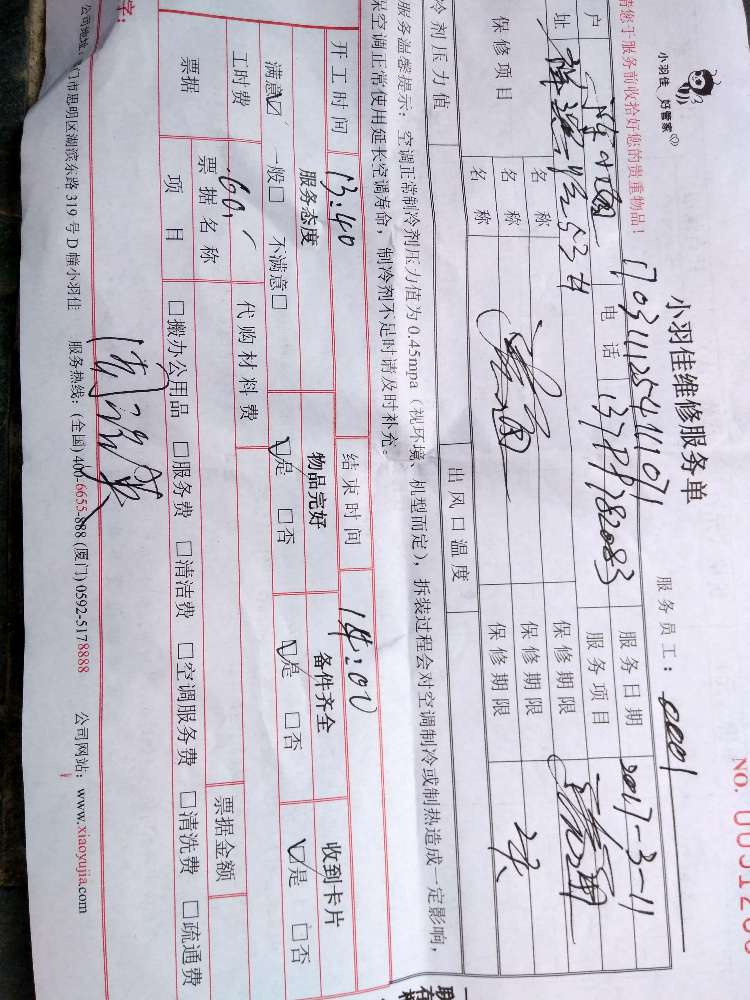 小羽佳 好管家
小羽佳维修服务单
NO.
请您于服务前收拾好您的贵重物品！
服务员工：0001
户
电话
服务日期 2017-3-11
址
服务项目
保修项目
名称
保修期限
名称
保修期限
名称
保修期限
冷剂压力值
出风口温度
服务温馨提示：空调正常制冷剂压力值为0.45mpa（视环境、机型而定），拆装过程会对空调制冷或制热造成一定影响，
保空调正常使用延长空调寿命，制冷剂不足时请及时补充。
开工时间 13:40 结束时间 14:00
服务态度 物品完好 备件齐全 收到卡片
满意☑ 一般□ 不满意□ ☑是 □否 ☑是 □否 ☑是 □否
工时费 60. 代购材料费
票据 票据名称 票据金额
项目 □搬办公用品 □服务费 □清洁费 □空调服务费 □清洗费 □疏通费
字：
公司地址：厦门市思明区湖滨东路319号D幢小羽佳 服务热线：(全国)400-6655-888 (厦门)0592-5178888 公司网站：www.xiaoyujia.com